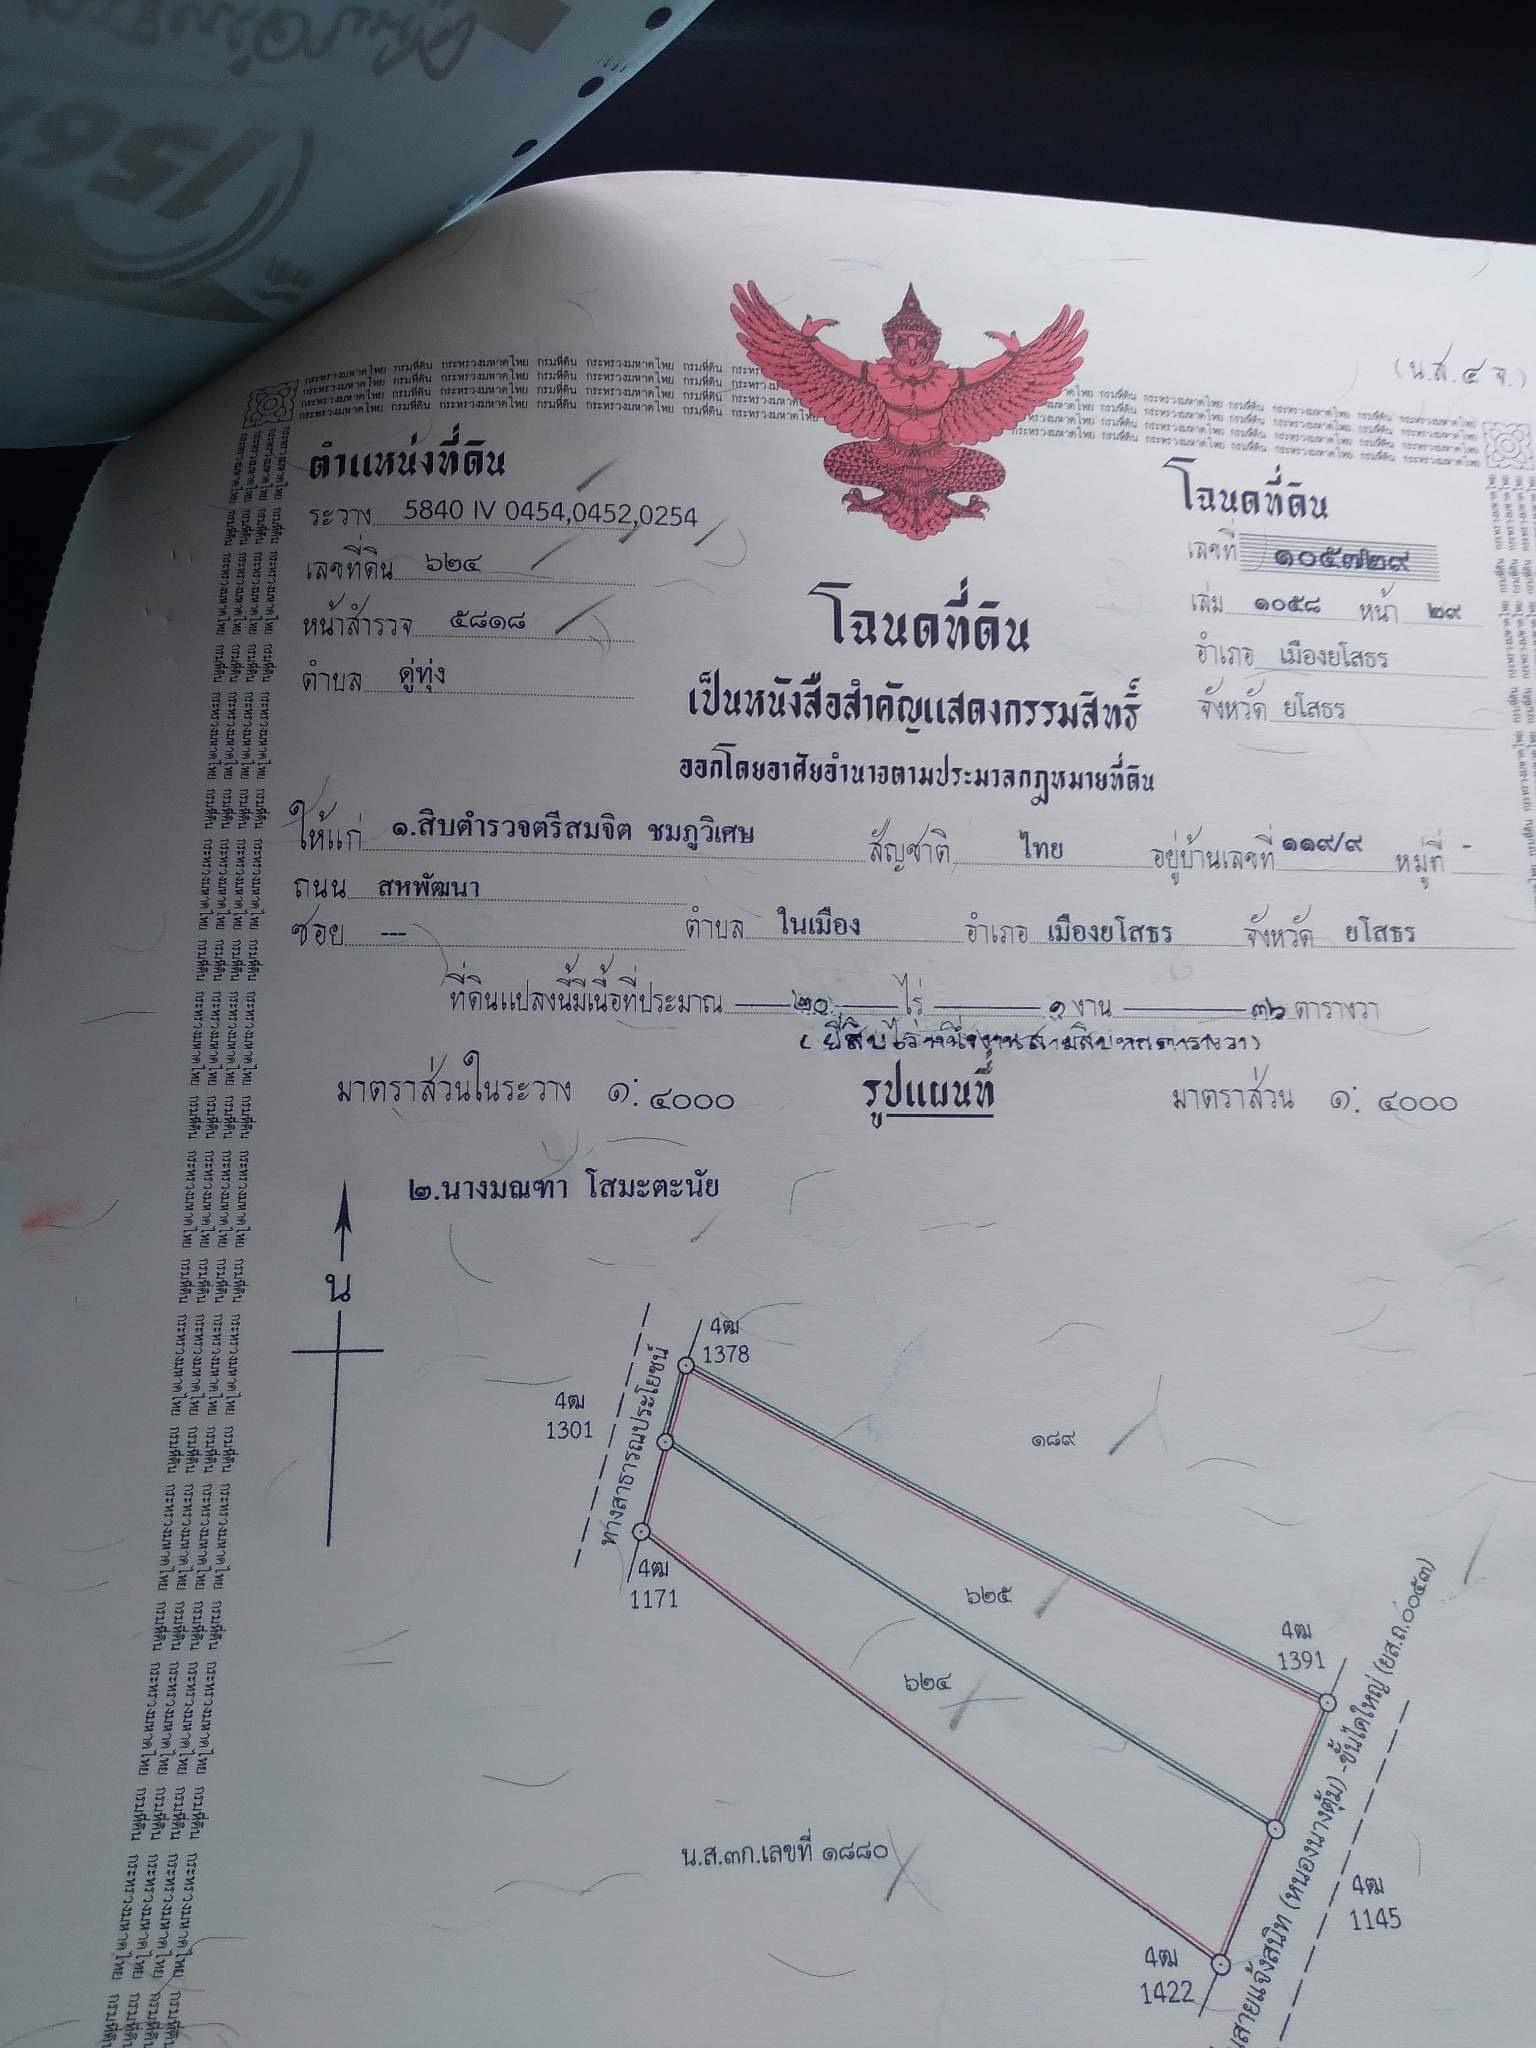 (น.ส.๔ จ.)
กระทรวงมหาดไทย กรมที่ดิน กระทรวงมหาดไทย กรมที่ดิน กระทรวงมหาดไทย กรมที่ดิน
ตำแหน่งที่ดิน
ระวาง 5840 IV 0454,0452,0254
เลขที่ดิน ๖๒๔
หน้าสำรวจ ๕๘๑๘
ตำบล ดู่ทุ่ง
โฉนดที่ดิน
เลขที่ ๑๐๕๗๒๙
เล่ม ๑๐๕๘ หน้า ๒๙
อำเภอ เมืองยโสธร
จังหวัด ยโสธร
โฉนดที่ดิน
เป็นหนังสือสำคัญแสดงกรรมสิทธิ์
ออกโดยอาศัยอำนาจตามประมวลกฎหมายที่ดิน
ให้แก่ ๑.สิบตำรวจตรีสมจิต ชมภูวิเศษ สัญชาติ ไทย อยู่บ้านเลขที่ ๑๑๙/๙ หมู่ที่ -
ถนน สหพัฒนา
ซอย --- ตำบล ในเมือง อำเภอ เมืองยโสธร จังหวัด ยโสธร
ที่ดินแปลงนี้มีเนื้อที่ประมาณ ๒๐ ไร่ ๑ งาน ๓๖ ตารางวา
(ยี่สิบไร่หนึ่งงานสามสิบหกตารางวา)
มาตราส่วนในระวาง ๑:๔๐๐๐ รูปแผนที่ มาตราส่วน ๑: ๔๐๐๐
๒.นางมณฑา โสมะตะนัย
น
4ฒ
1378
4ฒ
1301
ทางสาธารณประโยชน์
๑๘๙
4ฒ
1171
๖๒๕
4ฒ
1391
๖๒๔
น.ส.๓ก.เลขที่ ๑๘๘๐
4ฒ
1145
4ฒ
1422
สายแจ้งสนิท (หนองนางตุ้ม) -ขั้นไดใหญ่ (ยส.ถ.๐๐๕๓)